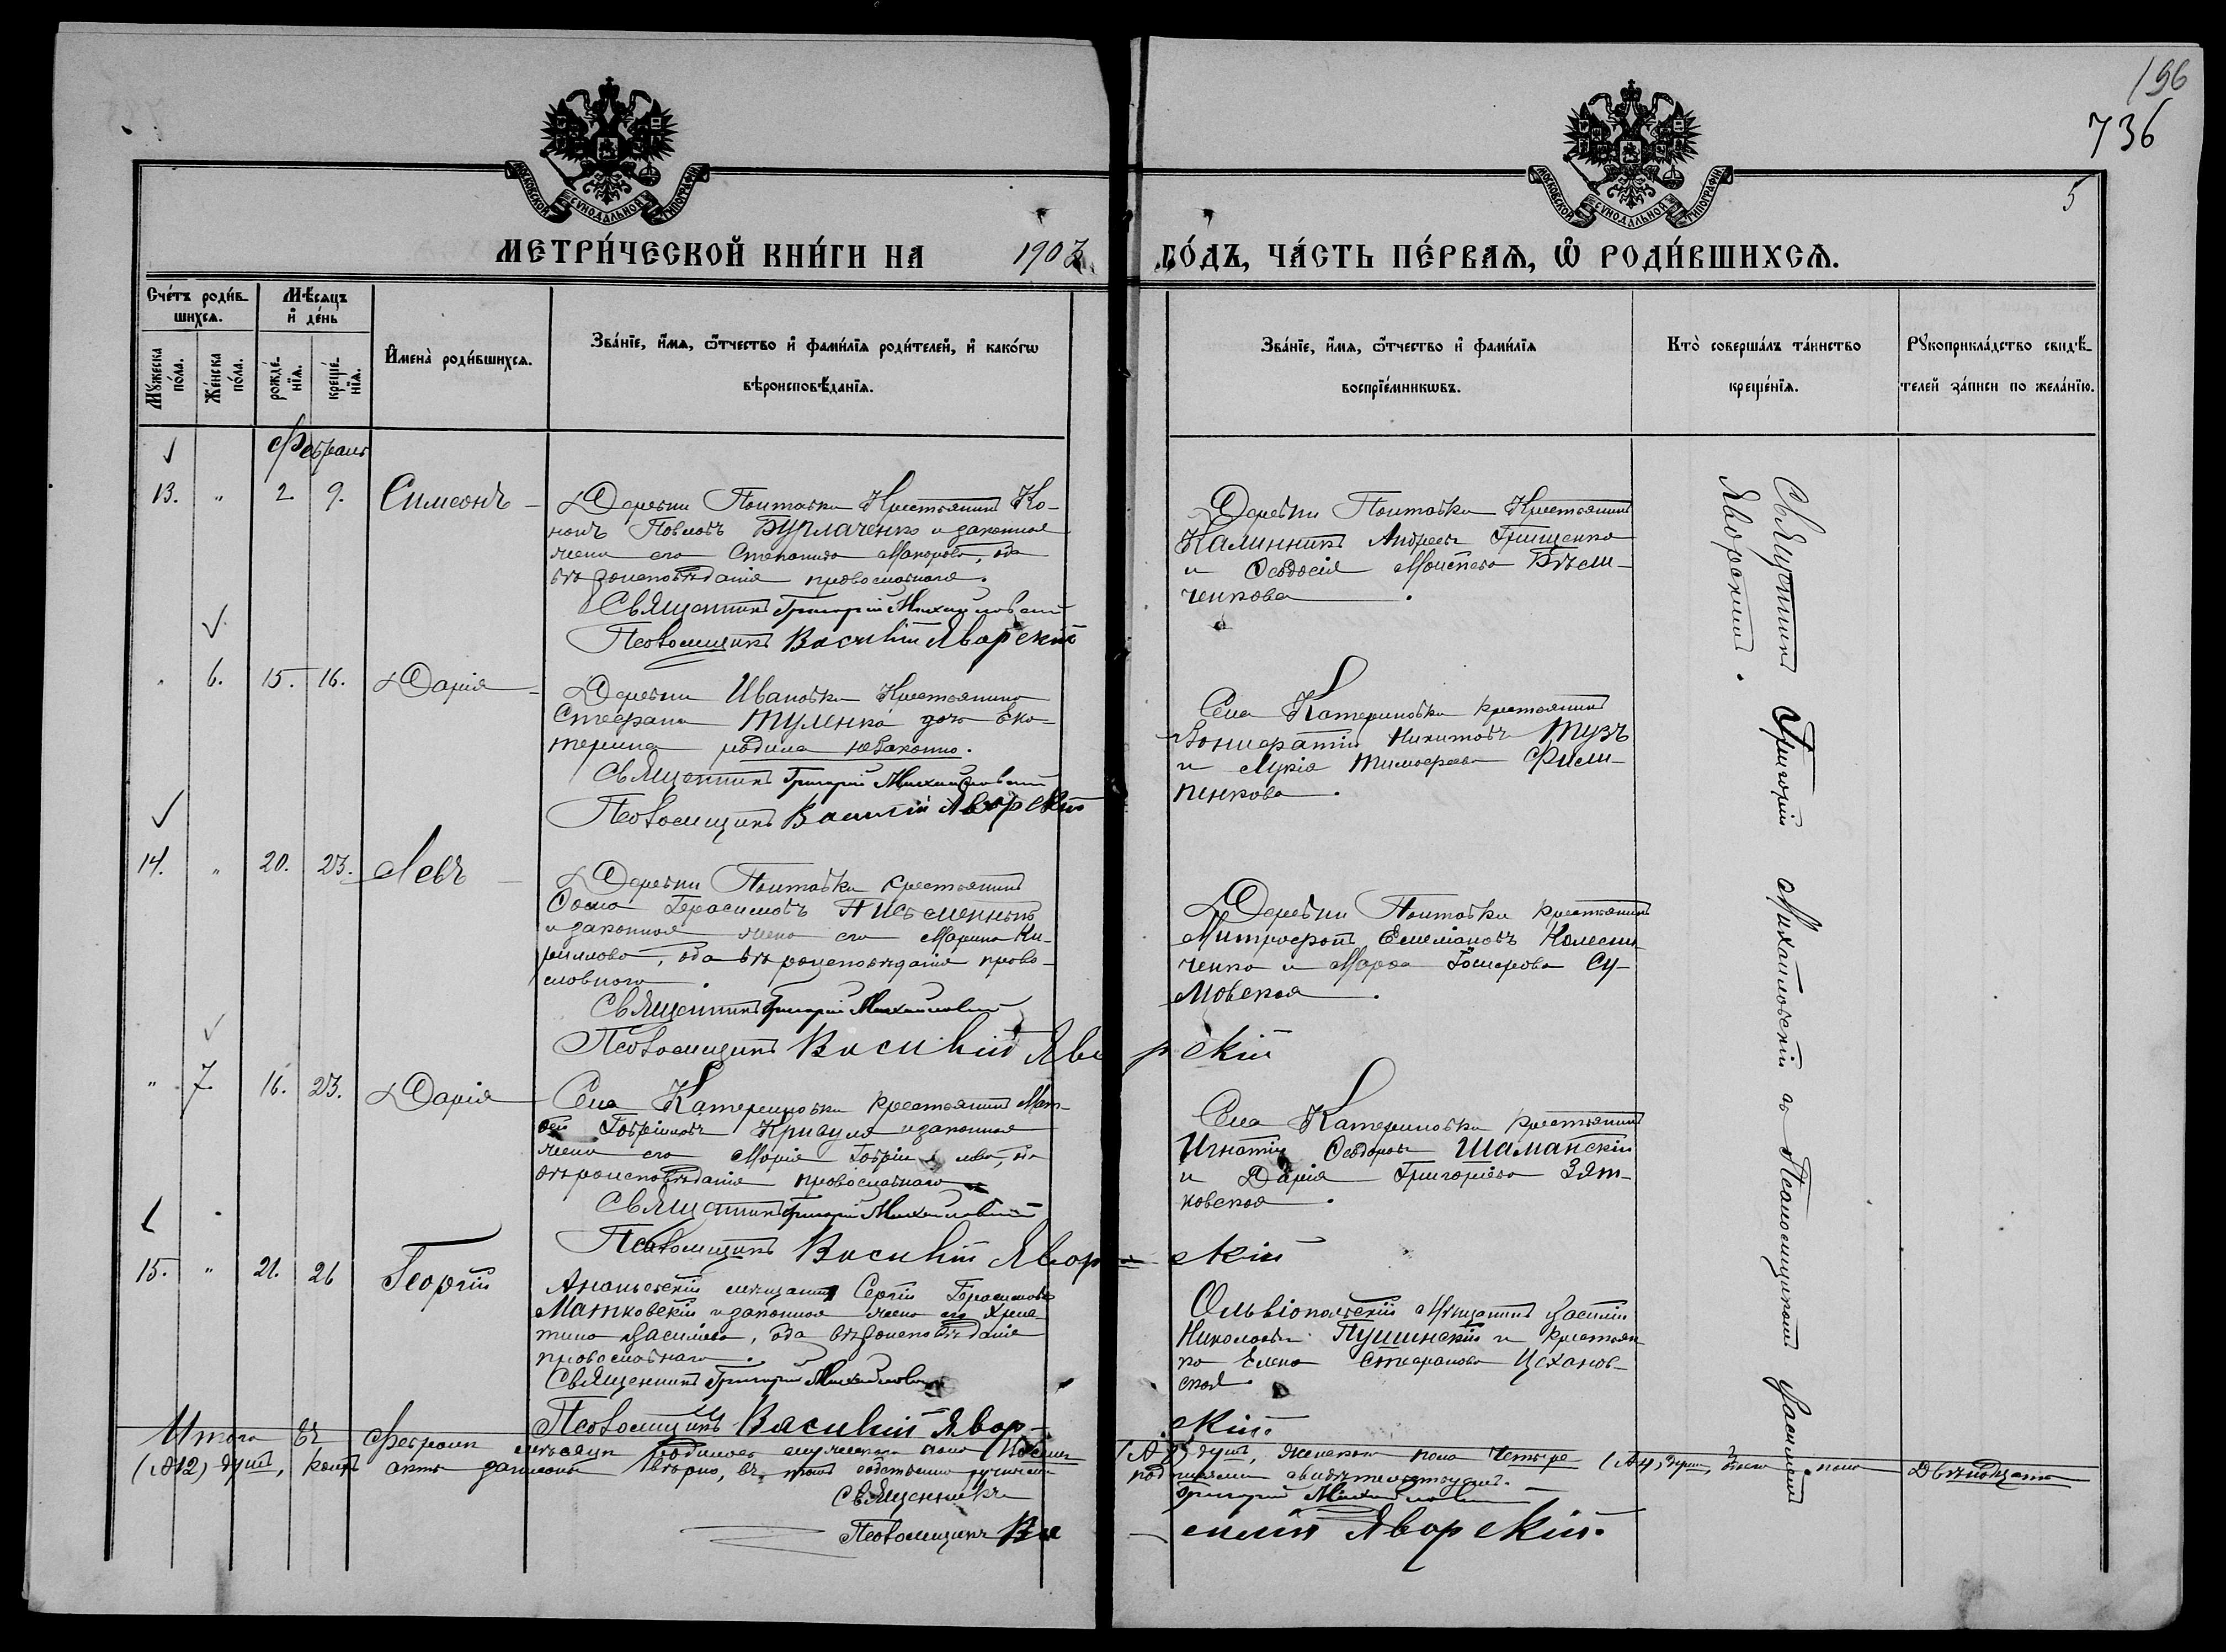 196
736
5
МОСКОВСКОЙ СѴНОДАЛЬНОЙ ТИПОГРАФІИ
МОСКОВСКОЙ СѴНОДАЛЬНОЙ ТИПОГРАФІИ
МЕТРИ́ЧЕСКОЙ КНИ́ГИ НА 1903 ГО́ДЪ, ЧА́СТЬ ПЕ́РВАѦ, Ѡ҆ РОДИ́ВШИХСѦ.
Сче́тъ роди́в-
шихсѧ.
Мѣ́сѧцъ
и҆ де́нь
Мꙋ́жеска
по́ла.
Же́нска
по́ла.
рожде́-
нїѧ.
креще́-
нїѧ.
И҆мена̀ роди́вшихсѧ.
Зва́нїе, и҆́мѧ, ѻ҆́тчество и҆ фами́лїѧ роди́телей, и҆ како́гѡ
вѣроисповѣ́данїѧ.
Зва́нїе, и҆́мѧ, ѻ҆́тчество и҆ фами́лїѧ
воспрїе́мникѡвъ.
Кто̀ соверша́лъ та́инство
креще́нїѧ.
Рꙋкоприкла́дство свидѣ́-
телей за́писи по жела́нїю.
Февраль
13. " 2. 9. Симеонъ
Деревни Полтавки Крестьянинъ Ко-
нонъ Павловъ Бурлаченко и законная
жена его Степанида Макарова, оба
вѣроисповѣданія православнаго.
Священникъ Григорій Михайловскій
Псаломщикъ Василій Яворскій
Деревни Полтавки Крестьянинъ
Калинникъ Андреевъ Грищенко
и Ѳеодосія Моисеева
ченкова.
" 6. 15. 16. Дарія
Деревни Ивановки Крестьянина
Стефана Туленка дочь Ека-
терина родила незаконно.
Священникъ Григорій Михайловскій
Псаломщикъ Василій Яворскій
Села Катериновки крестьянинъ
Вонифатій Никитовъ Тузъ
и Лукія Тимофеева Фили-
пенкова.
14. " 20. 23. Левъ
Деревни Полтавки крестьянинъ
Савва Герасимовъ Письменный
и законная жена его Марина Ки-
риллова, оба вѣроисповѣданія право-
славнаго.
Священникъ Григорій Михайловскій
Псаломщикъ Василій Яворскій
Деревни Полтавки крестьянинъ
Митрофанъ Емеліановъ Колесни-
ченко и Марѳа Іосифова Су-
мовская.
" 7. 16. 23. Дарія
Села Катериновки крестьянинъ Мат-
ѳей Гавріиловъ Кривуля и законная
жена его Марія Гавріилова, оба
вѣроисповѣданія православнаго
Священникъ Григорій Михайловскій
Псаломщикъ Василій Яворскій
Села Катериновки крестьянинъ
Игнатій Ѳеодоровъ Шаманскій
и Дарія Григоріева Зят-
ковская.
15. " 21. 26 Георгій
Ананьевскій мѣщанинъ Сергій Герасимовъ
Матковскій и законная жена его Хрис-
тина Василіева, оба вѣроисповѣданія
православнаго.
Священникъ Григорій Михайловскій
Псаломщикъ Василій Яворскій.
Ольвіопольскій мѣщанинъ Василій
Николаевъ Пушинскій и крестьян-
ка Елена Стефанова Цеханов-
ская.
Священникъ Григорій Михайловскій съ Псаломщикомъ Василіемъ
Яворскимъ.
Итого въ Февралѣ мѣсяцѣ родилось мужескаго пола душъ, женскаго пола четыре (№ 4) души, обоего пола Двѣнадцать
(№12) душъ, актъ записанъ вѣрно, въ томъ собственно ручнымъ подписомъ свидѣтельствуемъ.
Священникъ Григорій Михайловскій
Псаломщикъ Василій Яворскій.